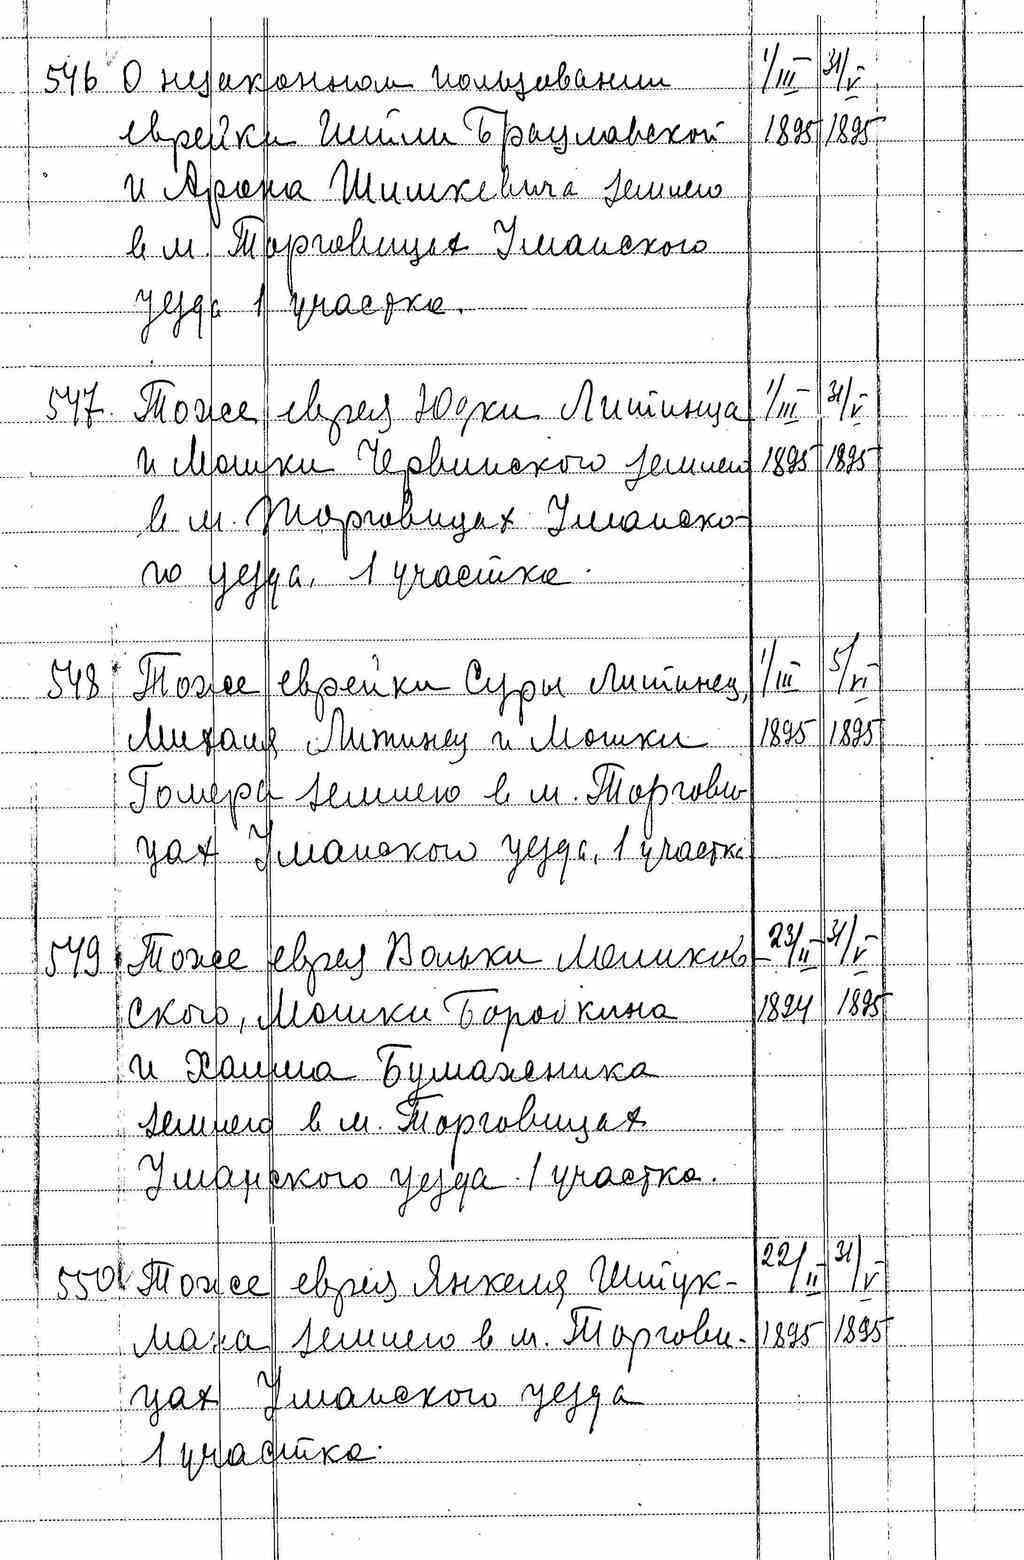 546 О незаконном пользовании 1/III 31/V
еврейки Шейли Брацлавской 1895 1895
и Арона Шишкевича землею
в м. Торговицах Уманского
уезда 1 участка.
547. Тоже еврея Юдки Литинца 1/III 31/V
и Мошки Червинского землею 1895 1895
в м. Торговицах Уманско-
го уезда, 1 участка.
548 Тоже еврейки Суры Литинец, 1/III 5/VI
Михаля Литинец и Мошки 1895 1895
Гомера землею в м. Торгови-
цах Уманского уезда, 1 участка
549 Тоже еврея Вольки Меликов- 23/II 31/V
ского, Мошки Бородкина 1894 1895
и Хаима Бумаженика
землею в м. Торговицах
Уманского уезда 1 участка.
550 Тоже еврея Янкеля Штук- 22/II 31/V
мана землею в м. Торгови- 1895 1895
цах Уманского уезда
1 участка.